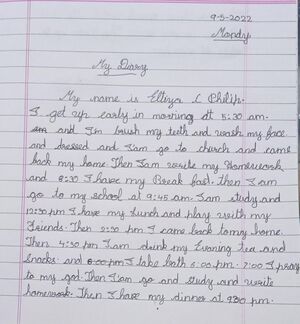 9-5-2022
Mondy
My Diary
My name is Elliza C Philip.
I get up early in morning at 5:30 am.
and I'm brush my teeth and wash my face
and dressed and I am go to church and came
back my home. Then I am write my Homework
and 8:30 I have my Break fast. then I am
go to my school at 9:45 am. I am study and
12:30 pm I have my Lunch and play with my
friends. Then 3:30 pm I came back to my home.
Then 4:30 pm I am drink my Evening tea and
snacks. and 6:00 pm I take bath 6.00 pm. 7:00 I pray
to my god. Then I am go and study and write
homework. Then I have my dinner at 9:30 pm.